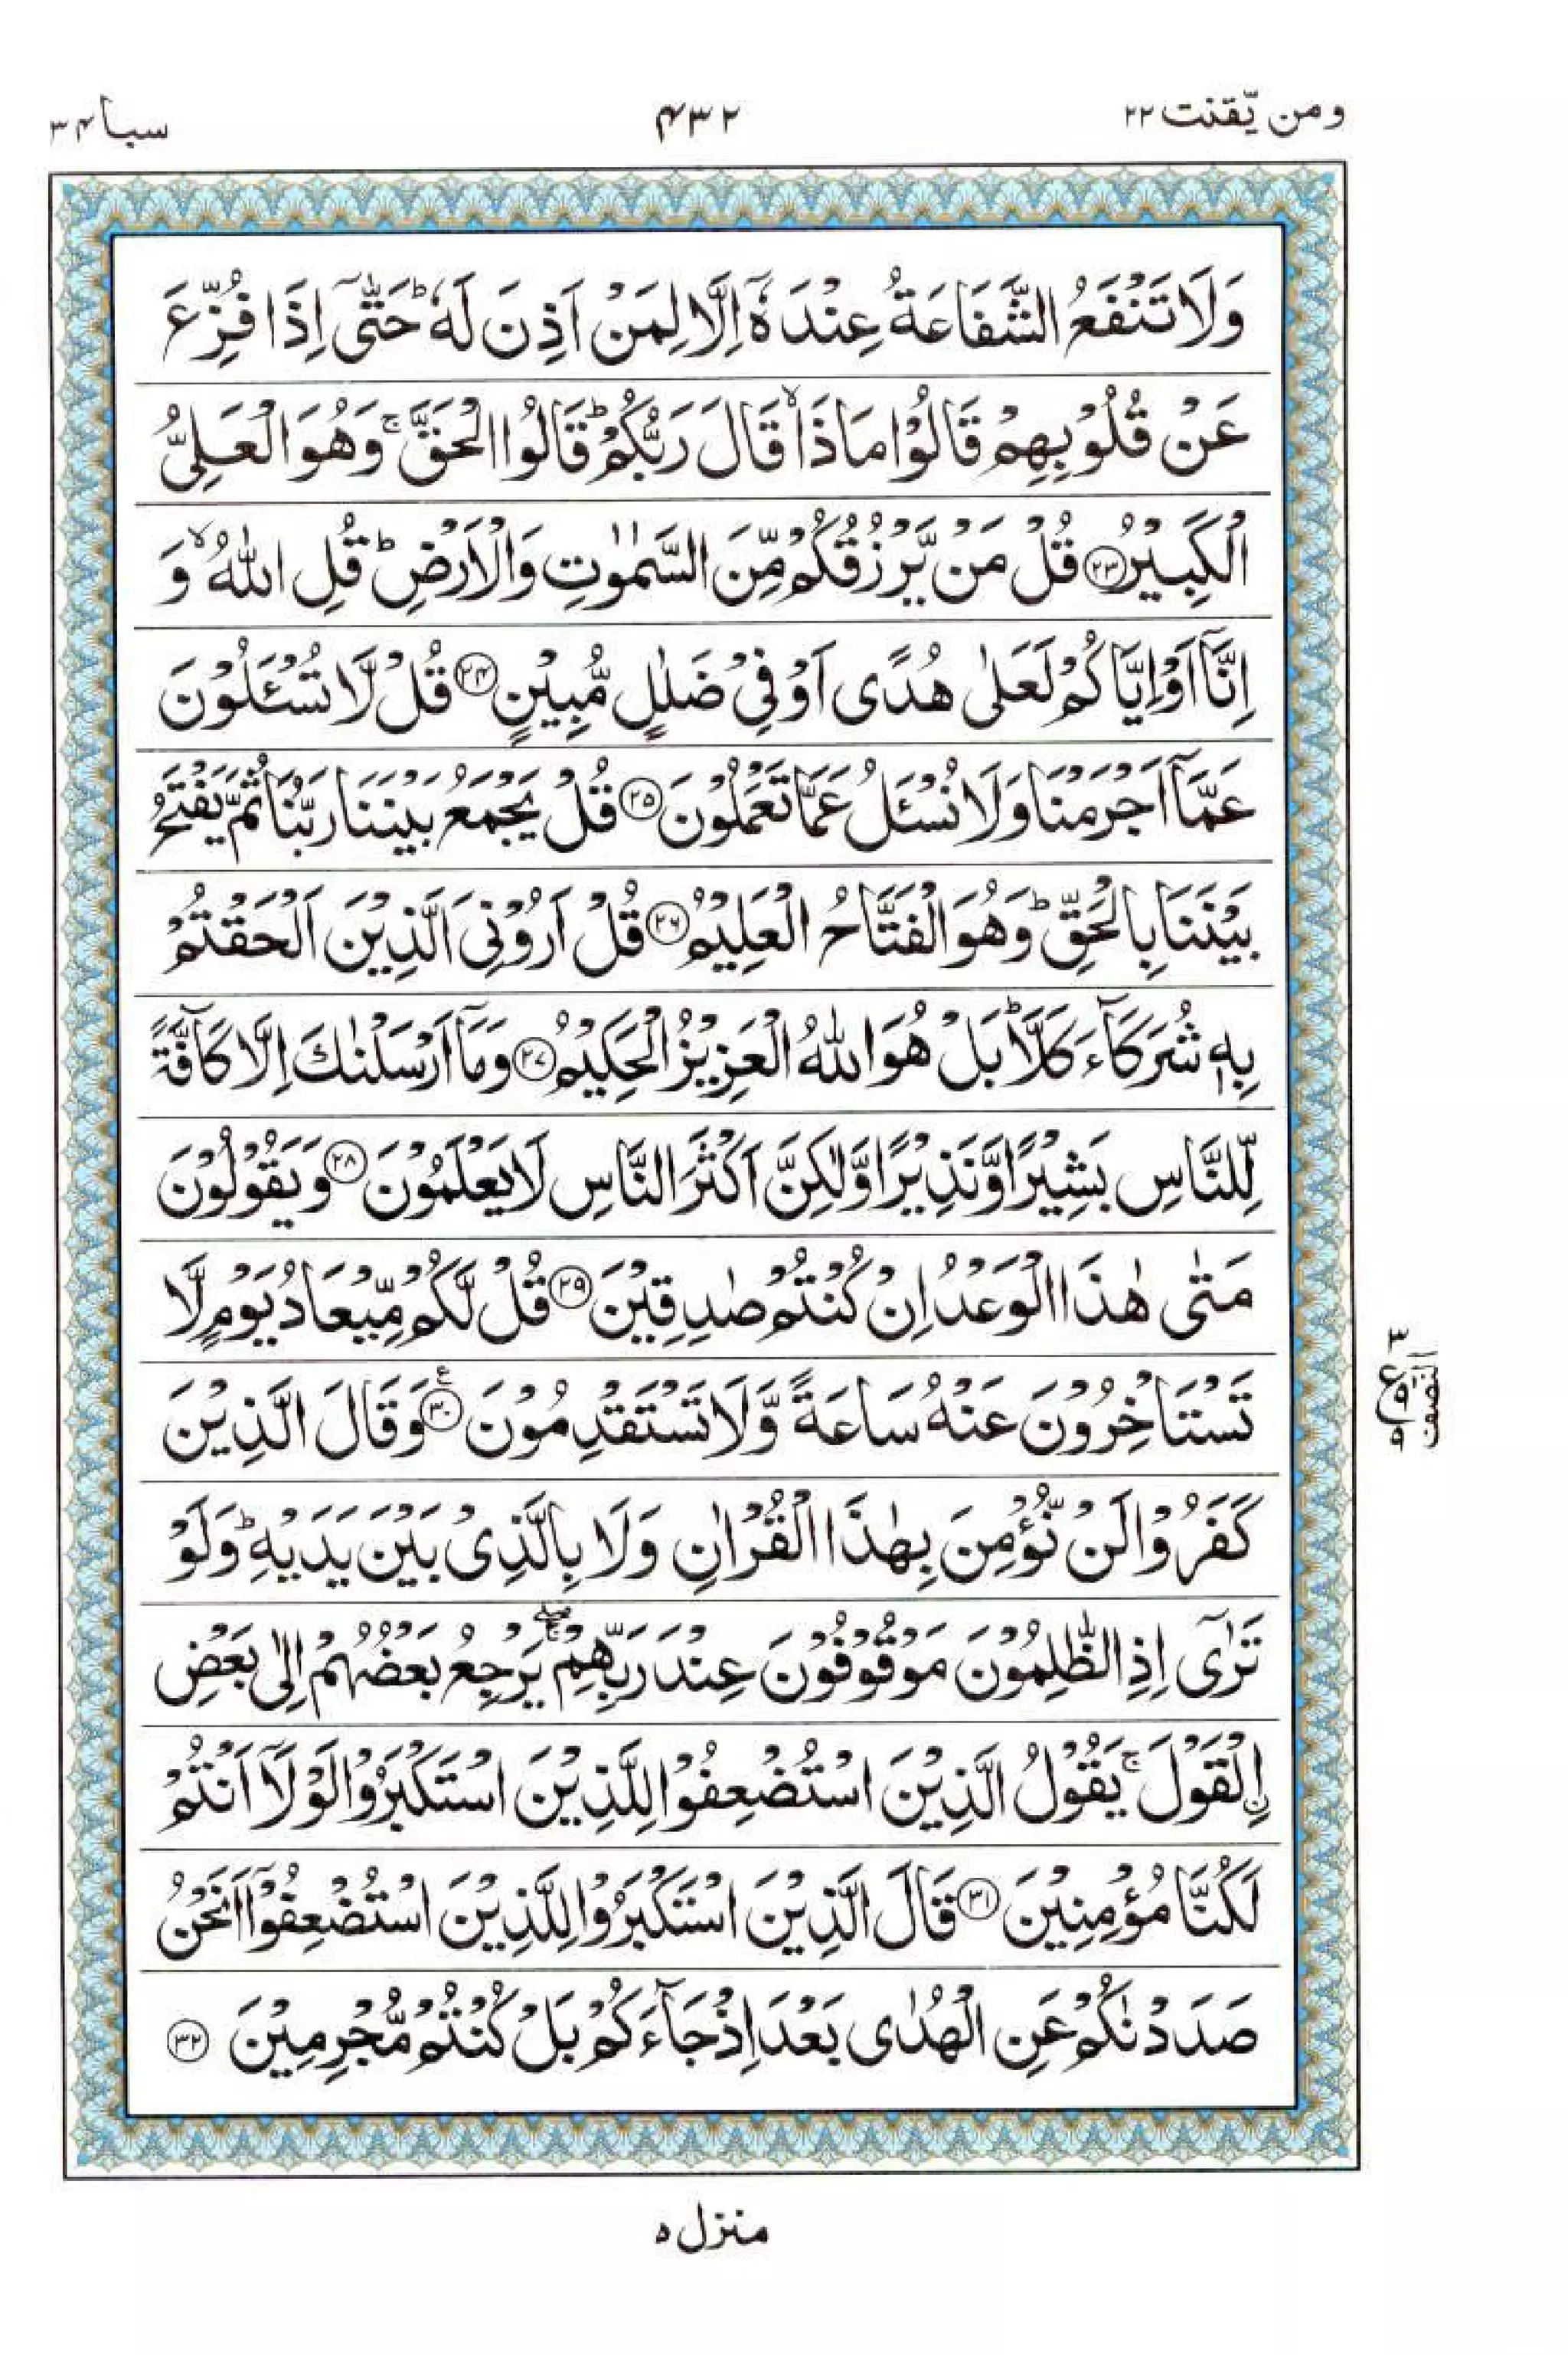 ومن يّقنت ٢٢
٤٣٢
سبا ٣٤
وَلَا تَنْفَعُ الشَّفَاعَةُ عِنْدَهٗۤ اِلَّا لِمَنْ اَذِنَ لَهٗ ؕ حَتّٰۤى اِذَا فُزِّعَ
عَنْ قُلُوْبِهِمْ قَالُوْا مَاذَا ۙ قَالَ رَبُّكُمْ ؕ قَالُوا الْحَقَّ ۚ وَهُوَ الْعَلِىُّ
الْكَبِيْرُ ﴿۲۳﴾ قُلْ مَنْ يَّرْزُقُكُمْ مِّنَ السَّمٰوٰتِ وَالْاَرْضِ ؕ قُلِ اللّٰهُ ۙ وَ
اِنَّاۤ اَوْ اِيَّاكُمْ لَعَلٰى هُدًى اَوْ فِىْ ضَلٰلٍ مُّبِيْنٍ ﴿۲۴﴾ قُلْ لَّا تُسْـَٔلُوْنَ
عَمَّاۤ اَجْرَمْنَا وَلَا نُسْـَٔلُ عَمَّا تَعْمَلُوْنَ ﴿۲۵﴾ قُلْ يَجْمَعُ بَيْنَنَا رَبُّنَا ثُمَّ يَفْتَحُ
بَيْنَنَا بِالْحَقِّ ؕ وَهُوَ الْفَتَّاحُ الْعَلِيْمُ ﴿۲۶﴾ قُلْ اَرُوْنِىَ الَّذِيْنَ اَلْحَقْتُمْ
بِهٖ شُرَكَآءَ كَلَّا ؕ بَلْ هُوَ اللّٰهُ الْعَزِيْزُ الْحَكِيْمُ ﴿۲۷﴾ وَمَاۤ اَرْسَلْنٰكَ اِلَّا كَآفَّةً
لِّلنَّاسِ بَشِيْرًا وَّنَذِيْرًا وَّلٰكِنَّ اَكْثَرَ النَّاسِ لَا يَعْلَمُوْنَ ﴿۲۸﴾ وَيَقُوْلُوْنَ
مَتٰى هٰذَا الْوَعْدُ اِنْ كُنْتُمْ صٰدِقِيْنَ ﴿۲۹﴾ قُلْ لَّكُمْ مِّيْعَادُ يَوْمٍ لَّا
تَسْتَاْخِرُوْنَ عَنْهُ سَاعَةً وَّلَا تَسْتَقْدِمُوْنَ ﴿۳۰﴾ ع وَقَالَ الَّذِيْنَ
كَفَرُوْا لَنْ نُّؤْمِنَ بِهٰذَا الْقُرْاٰنِ وَلَا بِالَّذِىْ بَيْنَ يَدَيْهِ ؕ وَلَوْ
تَرٰٓى اِذِ الظّٰلِمُوْنَ مَوْقُوْفُوْنَ عِنْدَ رَبِّهِمْ ۖۚ يَرْجِعُ بَعْضُهُمْ اِلٰى بَعْضِ
اِۨلْقَوْلَ ۚ يَقُوْلُ الَّذِيْنَ اسْتُضْعِفُوْا لِلَّذِيْنَ اسْتَكْبَرُوْا لَوْلَاۤ اَنْتُمْ
لَكُنَّا مُؤْمِنِيْنَ ﴿۳۱﴾ قَالَ الَّذِيْنَ اسْتَكْبَرُوْا لِلَّذِيْنَ اسْتُضْعِفُوْۤا اَنَحْنُ
صَدَدْنٰكُمْ عَنِ الْهُدٰى بَعْدَ اِذْ جَآءَكُمْ بَلْ كُنْتُمْ مُّجْرِمِيْنَ ﴿۳۲﴾
٣
ع
٩
٩
النّصف
منزل ٥